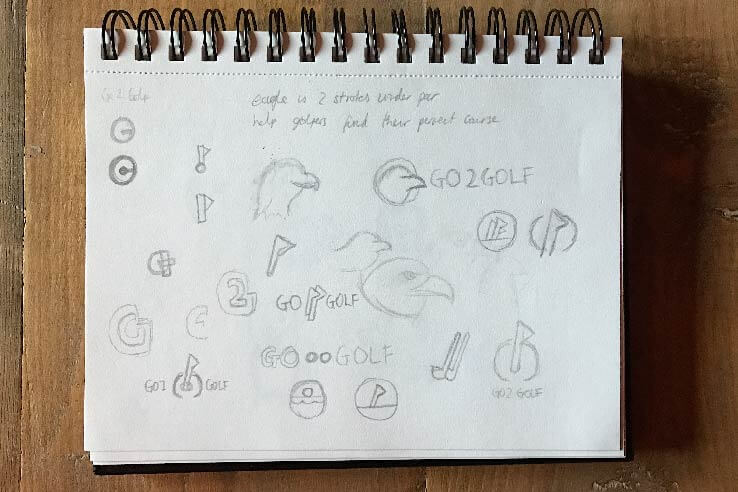 Go 2 Golf
eagle is 2 strokes under par
help golfers find their perfect course
G
G
GO2GOLF
G
2
G
GO GOLF
GO GOLF
GO2 GOLF
GO2 GOLF